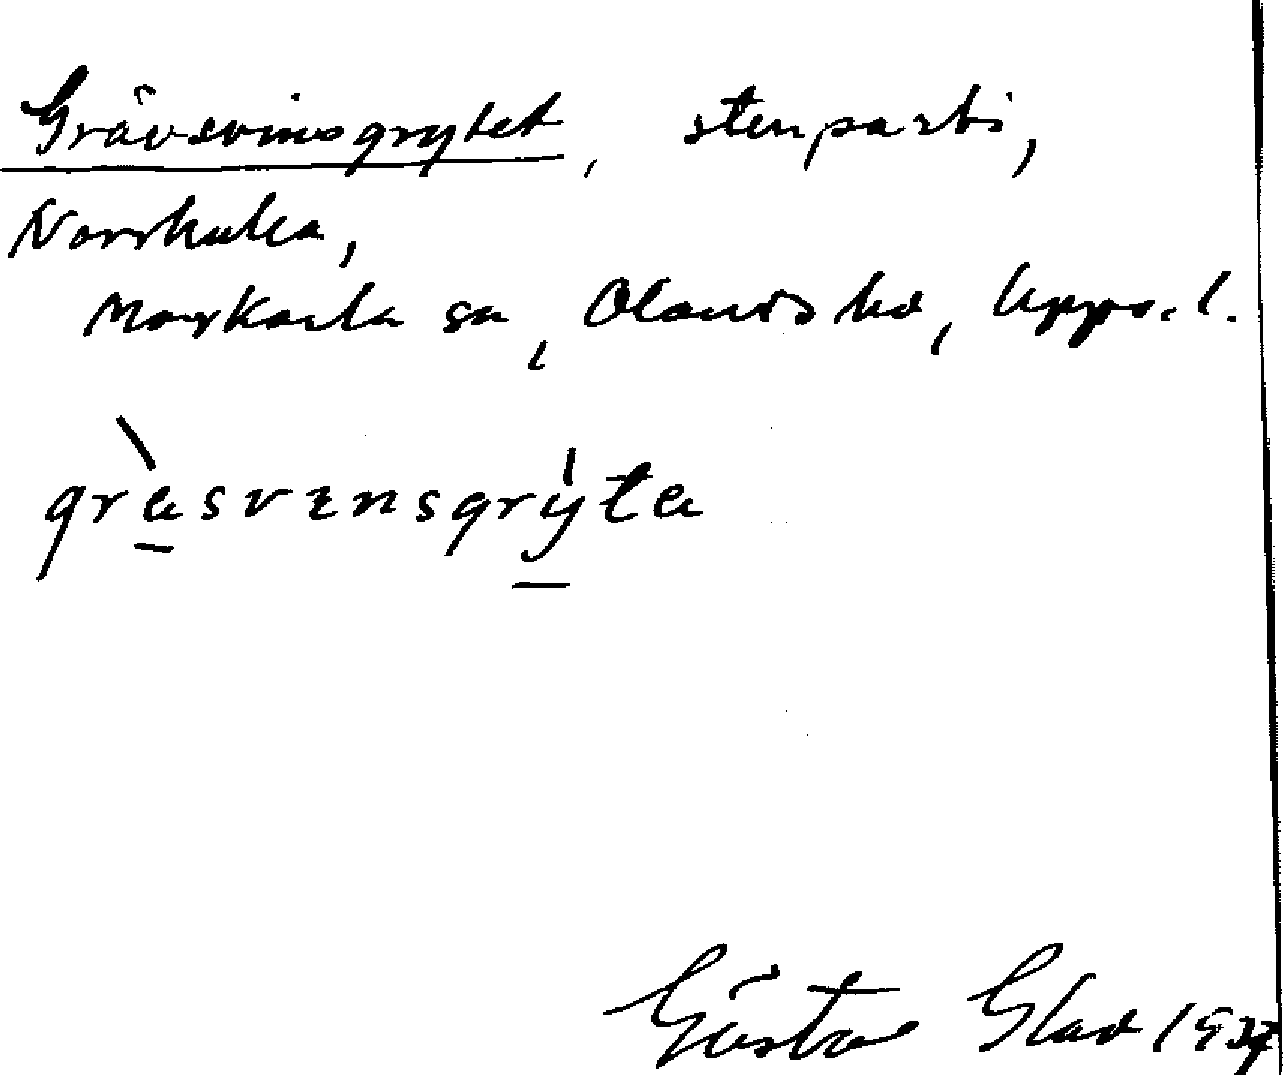 Grävsvinsgrytet, stenparti,
Norrskulla,
Morkarla sn, Olands hd, Upps. l.
gràsvensgrýta
Gustav Glad 1937